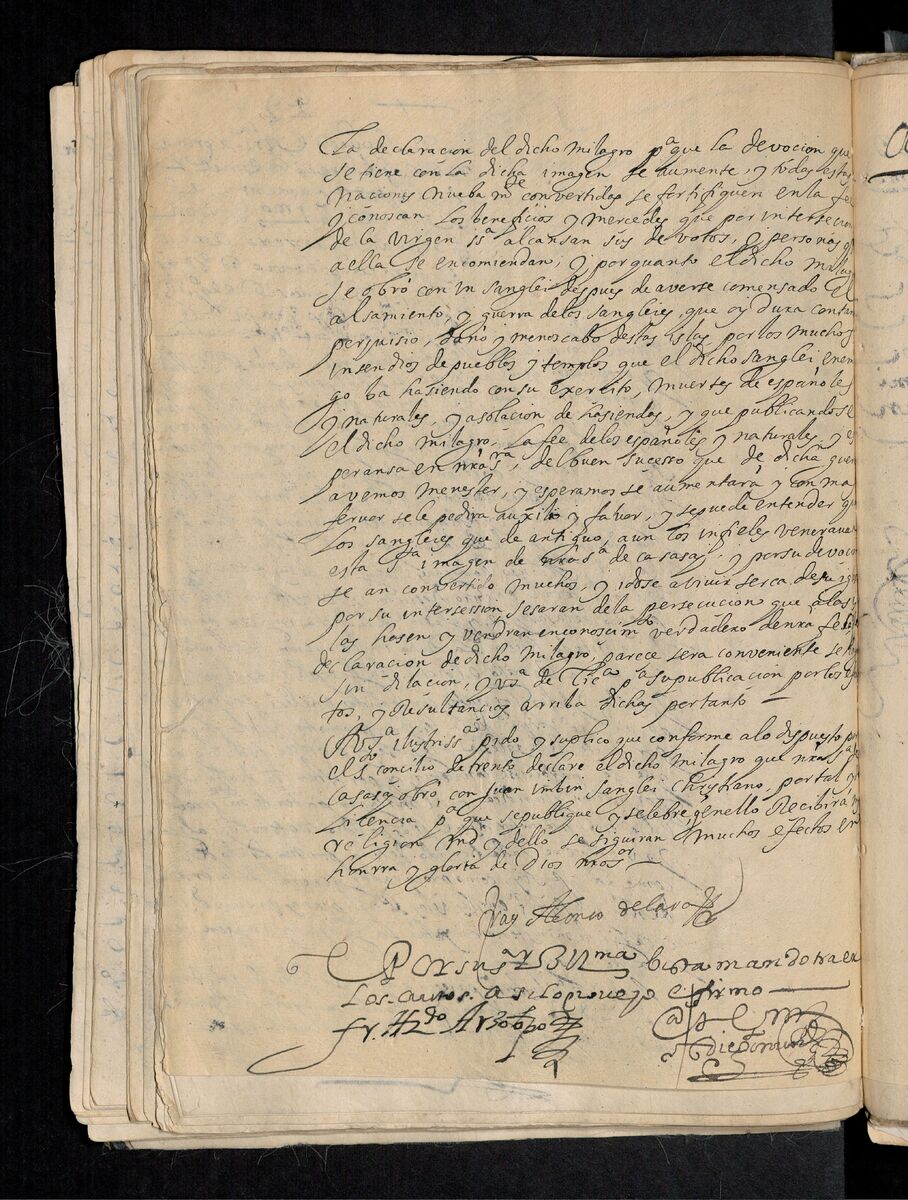 la declaracion del dicho milagro pª que la devocion que
se tiene con la dicha imagen se aumente, y todas estas
naciones nueba mte convertidas se fortifiquen en la fe
y conoscan los beneficios y mercedes que por intersecion
de la virgen ssª alcansan sus devotos, y personas q
a ella se encomiendan, y por quanto el dicho milag
se obró con un sanglei despues de averse comensado el
alsamiento, y guerra de los sangleies, que oy dura con tan
perjuisio, daño y menoscabo destas islas por los muchos
insendios de pueblos y templos que el dicho sanglei enem
go va hasiendo con su exersito, muertes de españoles
y naturales, y asolacion de hasiendas, y que publicandose
el dicho milagro, la fee de los españoles y naturales, y es
peransa en nrasra, del buen sucesso que de dicha guer
avemos menester, y esperamos se aumentará y con ma
fervor se le pedira auxilio y favor, y se puede entender que
los sangleies que de antiguo, aun los infieles venerava
esta sta imagen de nra sª de casasay, y por su devocio
se an convertido muchos, y idose a vivir serca de su ig
por su intercession sesaran de la persecucion que a las
las hasen y vendran en conoscimto verdadero de nra fe
declaracion de dicho milagro, parece sera conveniente se
sin dilacion, y vsª de licª pª su publicacion por los
tos, y Resultancias arriba dichas por tanto —
A vsª ilustrissª pido y suplico que conforme a lo dispuesto p
el s. concilio de trento declare el dicho milagro que nra sª
casasay obró, con Juan imbin sanglei christiano, por tal y
licencia pª que se publique y selebre, q en ello Recibirá
religion md y dello se siguiran muchos efectos en
honrra y gloria de Dios nro sr —
fray Alonso de lara
Por su sª Illma bista mando traer
los autos a si lo proveyo e firmo —
fr. Hdo Arzobpo